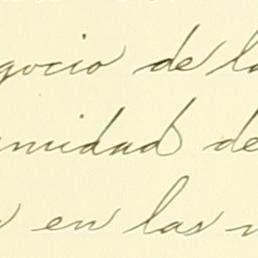 gocio de la
nidad de
en las